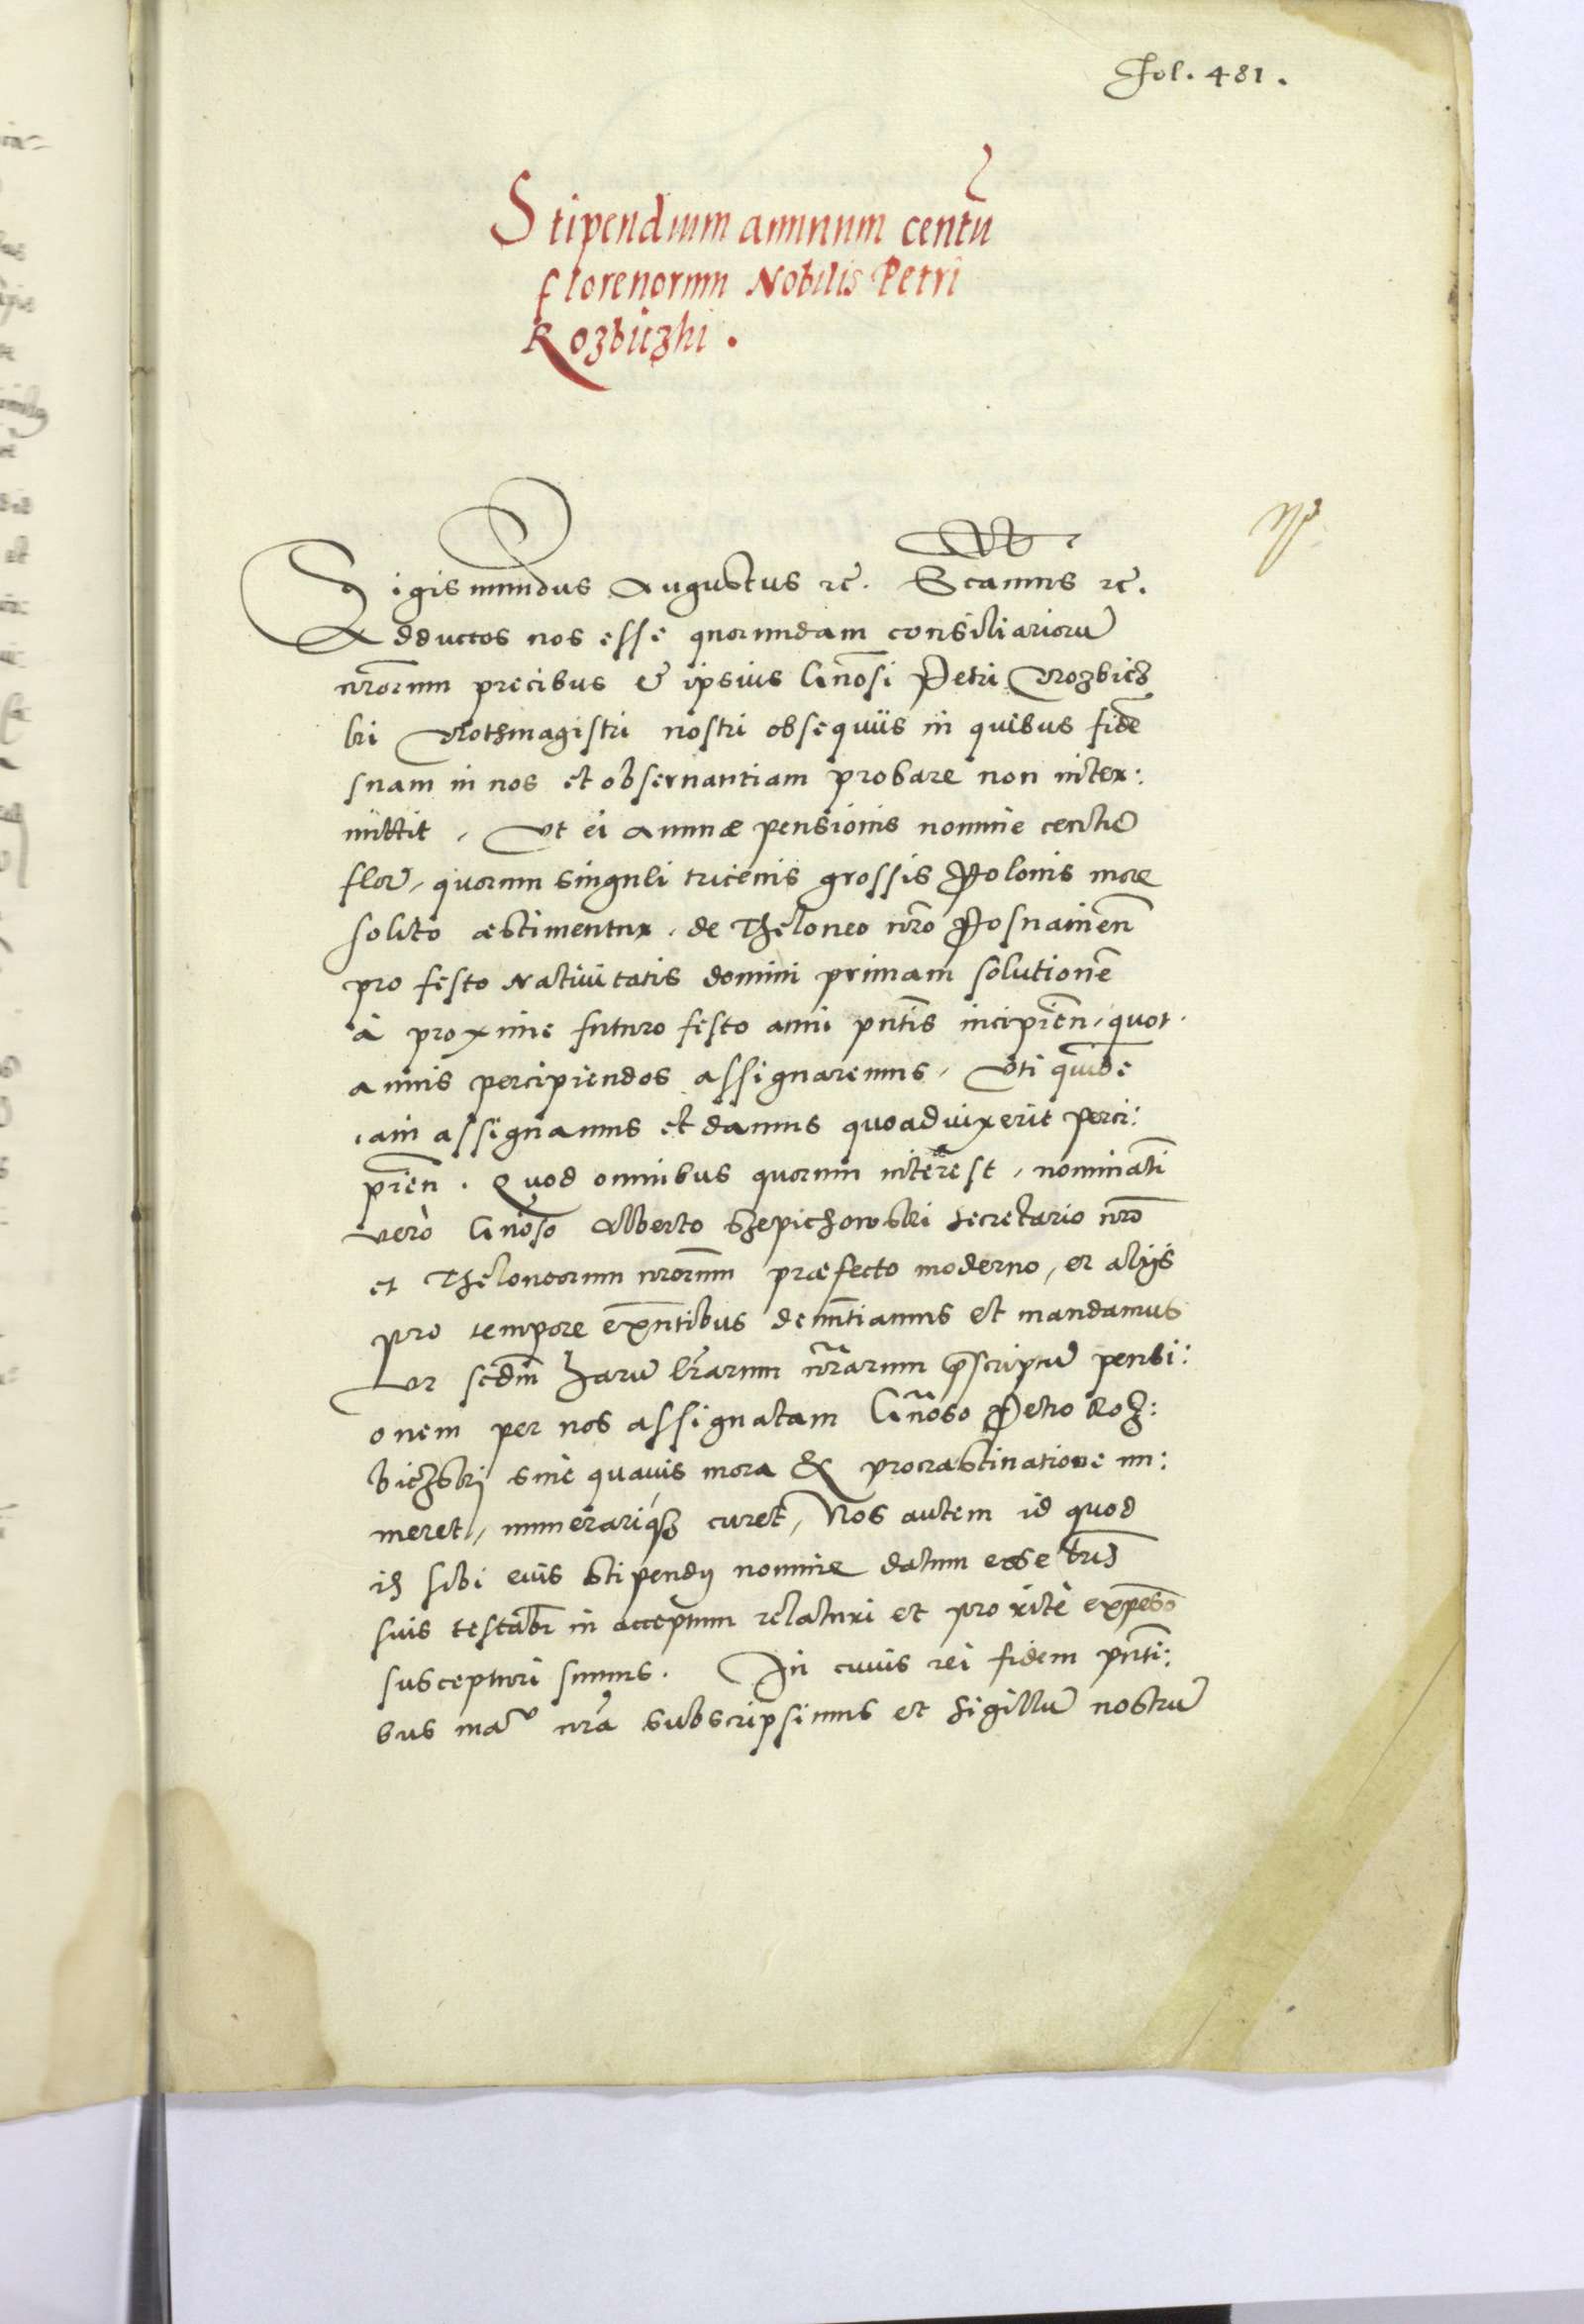 Fol. 481.
Stipendium annuum centū
florenorum Nobilis Petri
Rozbiczhi.
Sigismundus Augustus rc̄. Scimus rc̄.
Adductos nos esse quorundam consiliariorū
nr̄orum precibus & ipsius Gn̄osi Petri Rozbicz
ki Rothmagistri nostri obsequiis in quibus fidē
suam in nos et obseruantiam probare non inter:
mittit, Vt ei annuæ pensionis nomine centū
flor̄, quorum singuli tricenis grossis Polonis more
solito æstimentur, de Theloneo nr̄o Posnanien̄
pro festo Natiuitatis domini primam solutionē
à proxime futuro festo anni pn̄tis incipien̄, quot
annis percipiendos assignaremus, Vti quidē
iam assignamus et damus quoad uixerit perci:
pien̄. Quod omnibus quorum interest, nominātī
verò Gn̄oso Alberto Szepichowski secretario nr̄o
et Theloneorum nr̄orum præfecto moderno, et alijs
pro tempore exn̄tibus denun̄tiamus et mandamus
Vt secdm̄ harū lr̄arum nr̄arum p̄scriptū pensi:
onem per nos assignatam Gn̄oso Petro Roz:
biczskij sine quauis mora & procrastinatione nu:
meret, numerariq̃ curet, Nos autem id quod
is sibi eius stipendij nomine datum esse
suis in acceptum relaturi et pro ritè expēso
suscepturi sumus. In cuius rei fidem pn̄ti:
bus manu nr̄a subscripsimus et sigillū nostrū